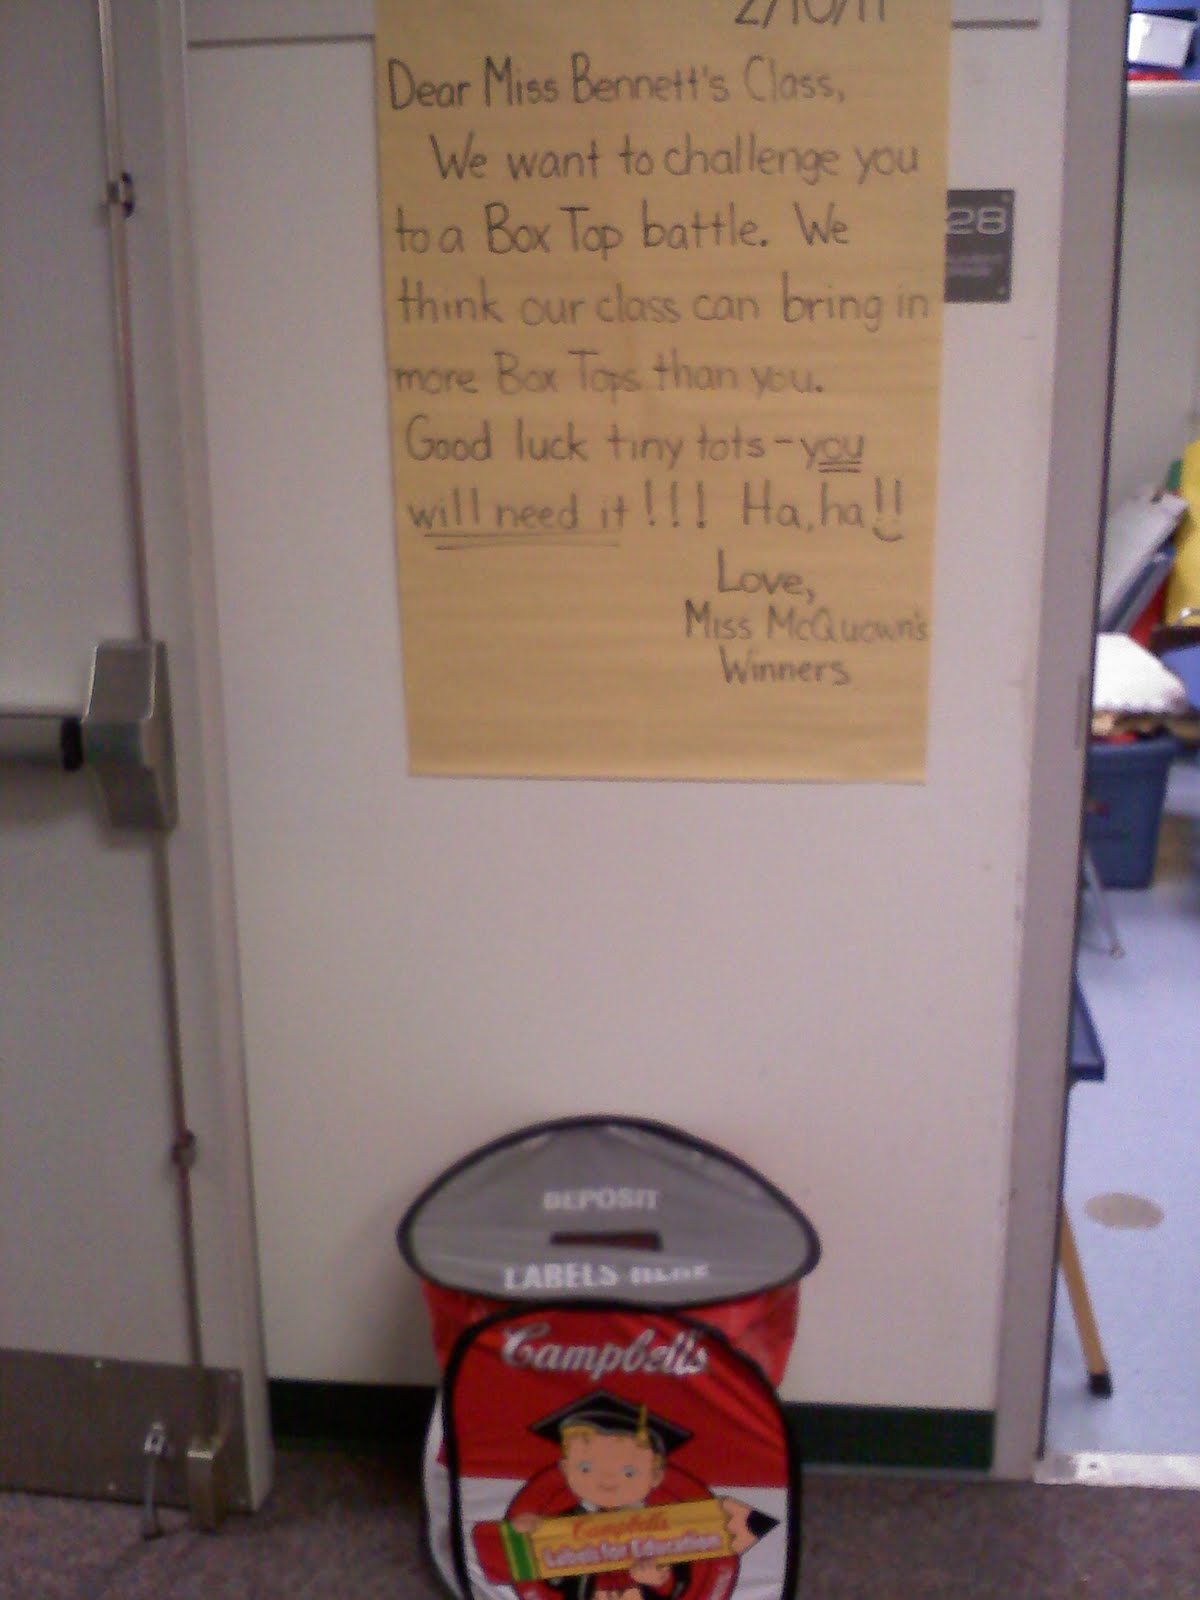 2/10/11
Dear Miss Bennett's Class,
We want to challenge you
to a Box Top battle. We
think our class can bring in
more Box Tops than you.
Good luck tiny tots - you
will need it!!! Ha, ha!!
Love,
Miss McQuown's
Winners
28
DEPOSIT
LABELS HERE
Campbell's
Campbell's
Labels for Education